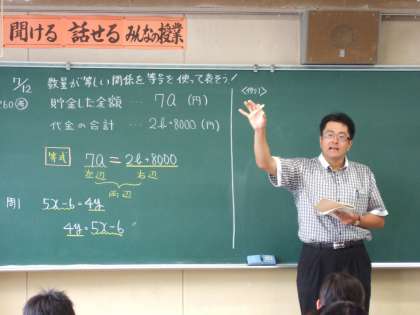 聞ける 話せる みんなの授業
7/12 数量が等しい関係を等号を使って表そう!
P60 考 貯金した金額 … 7a (円)
代金の合計 … 2b+8000 (円)
等式 7a = 2b+8000
左辺 右辺
両辺
問1 5x-6=4y
4y=5x-6